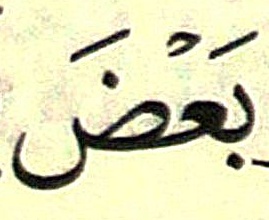 بَعْضَ